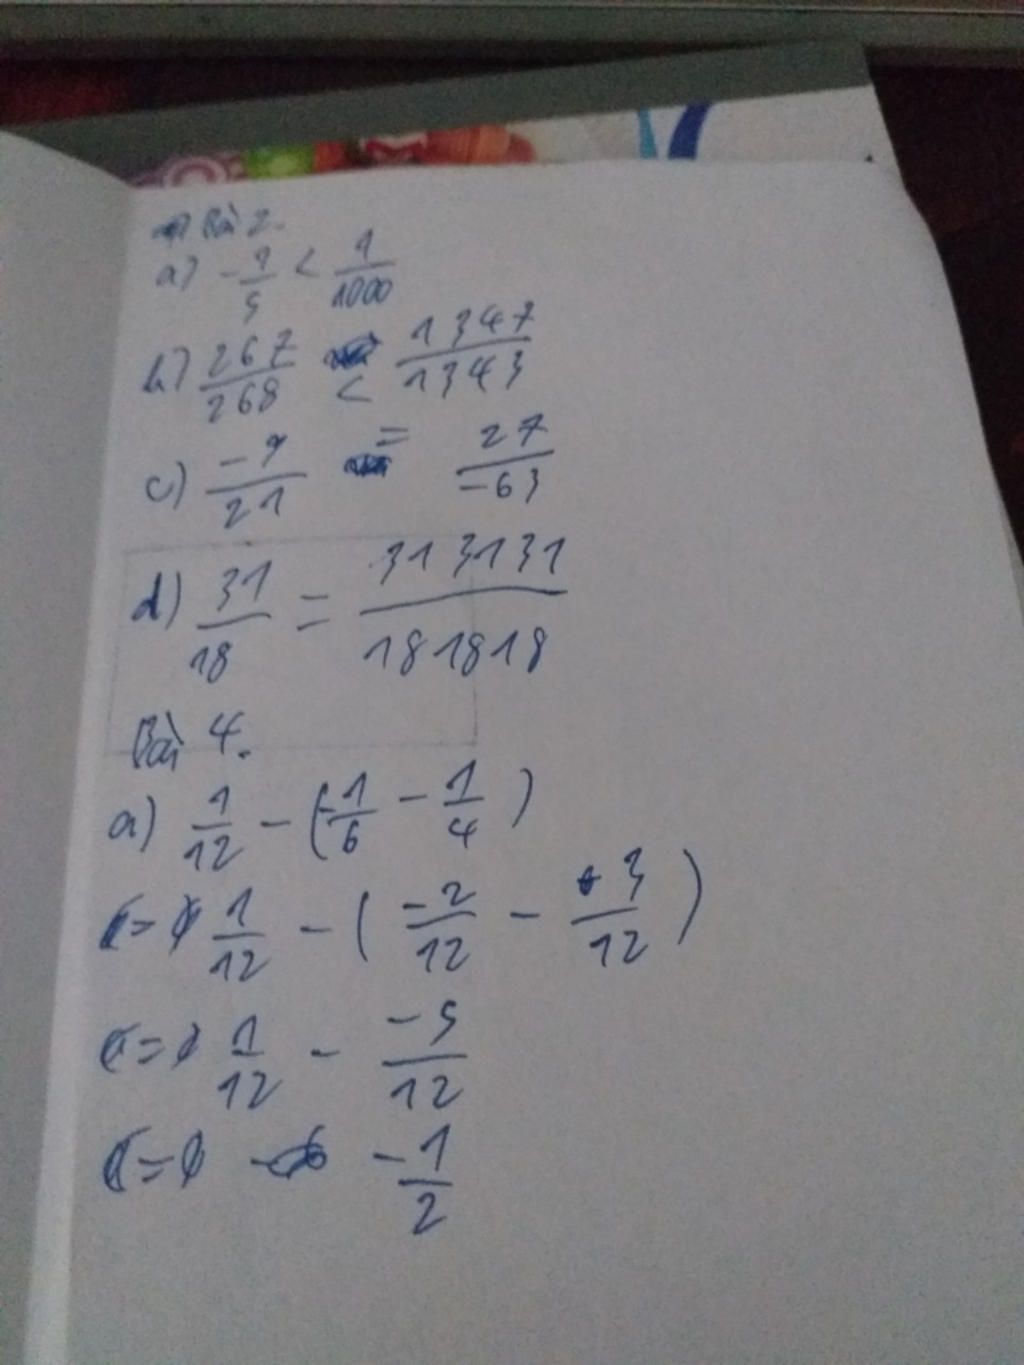 Bài 2.
a) -1/5 < 1/1000
b) 267/268 < 1347/1343
c) -9/21 = 27/-63
d) 31/18 = 313131/181818
Bài 4.
a) 1/12 - (-1/6 - 1/4)
= 1/12 - (-2/12 - 3/12)
= 1/12 - -5/12
= -1/2